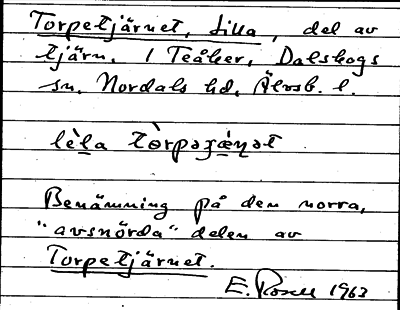 Torpetjärnet, Lilla, del av
tjärn. 1 Teåker, Dalskogs
sn, Nordals hd, Älvsb. l.
Benämning på den norra,
"avsnörda" delen av
Torpetjärnet.
E. Rosell 1963